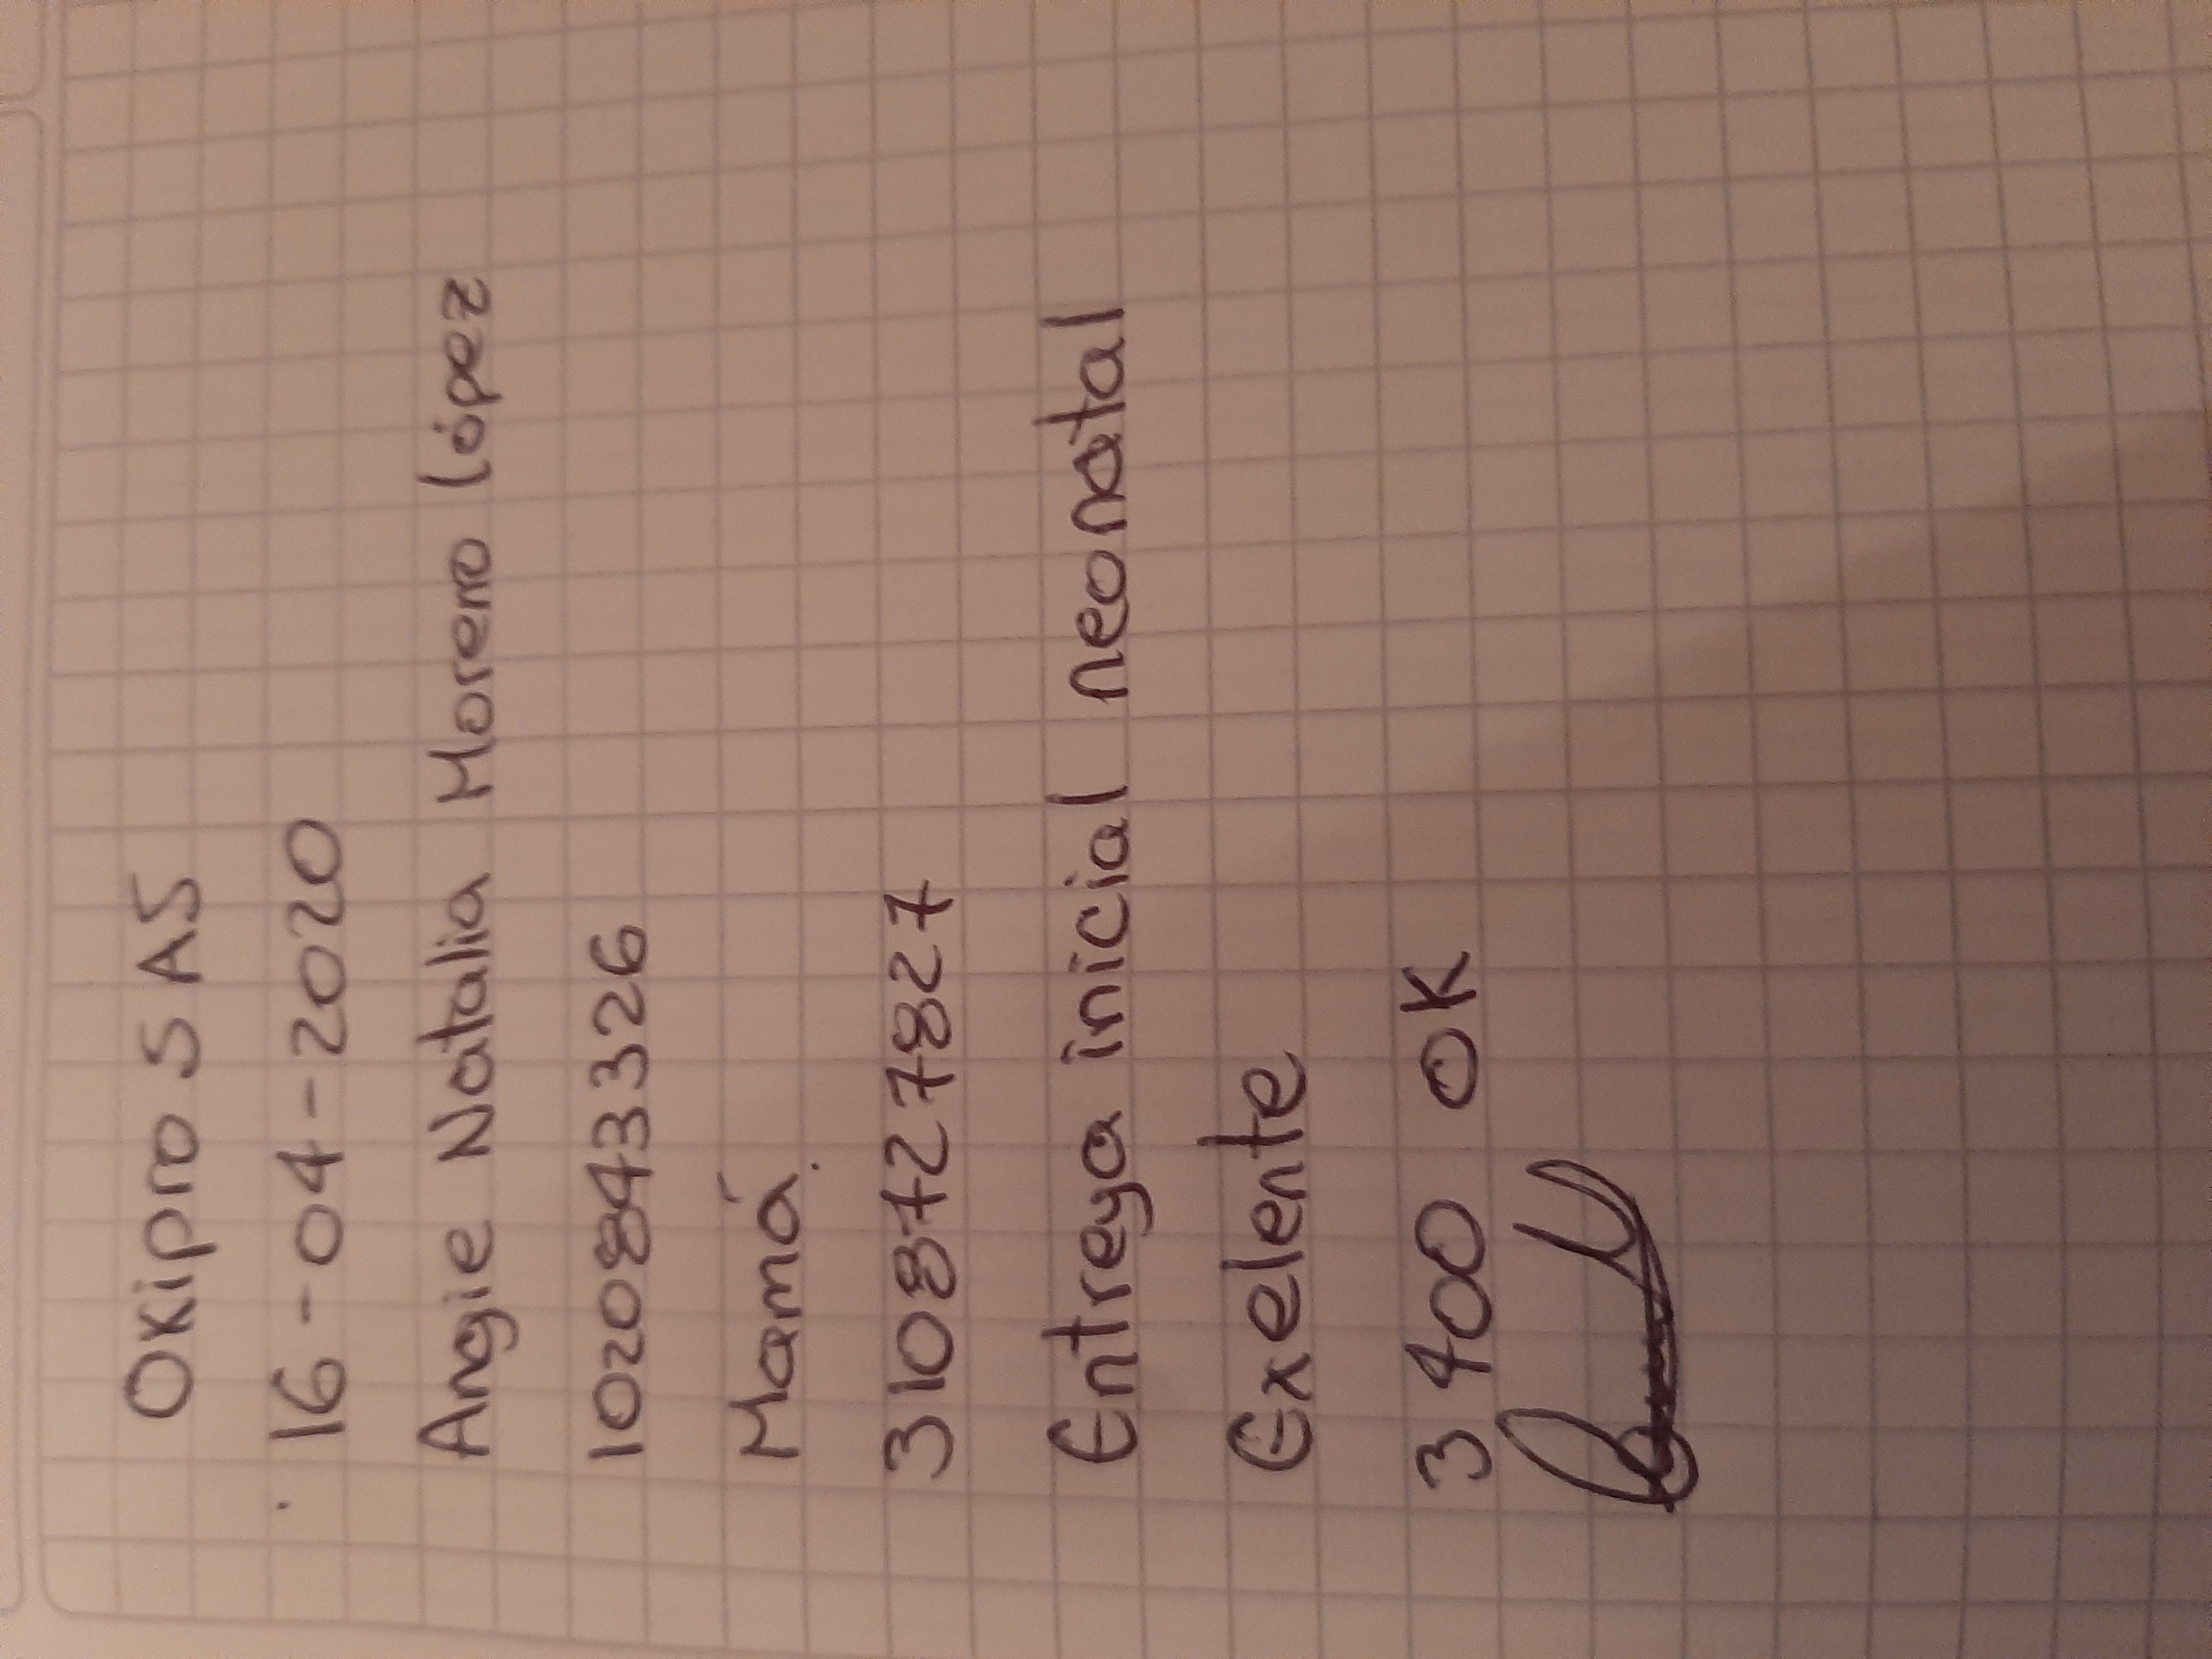 Okipro SAS
16-04-2020
Angie Natalia Moreno López
1020843326
Mamá.
3108727827
Entrega inicial neonatal
Exelente
3400 OK